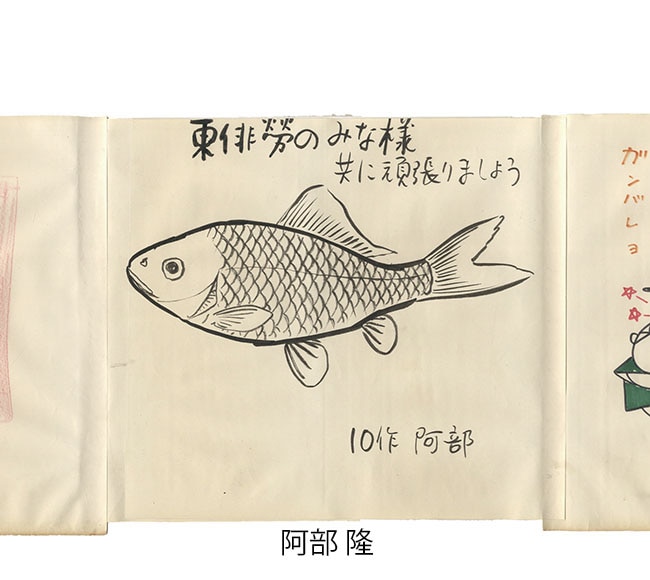 東俳労のみな様
共に頑張りましょう
10作 阿部
ガンバレヨ
阿部 隆